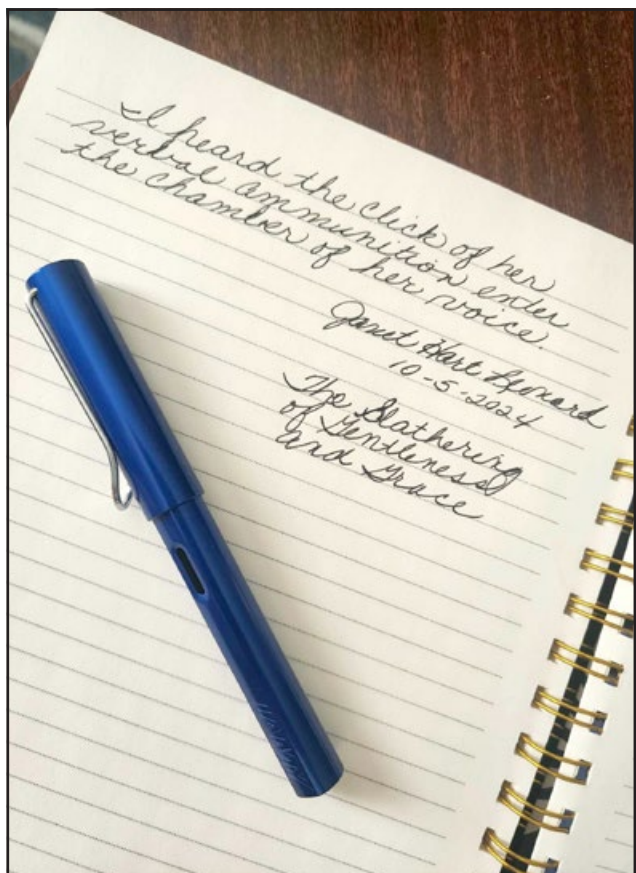 I heard the click of her
verbal ammunition enter
the chamber of her voice.
Janet Hart Leonard
10-5-2024
The Slathering
of Gentleness
and Grace